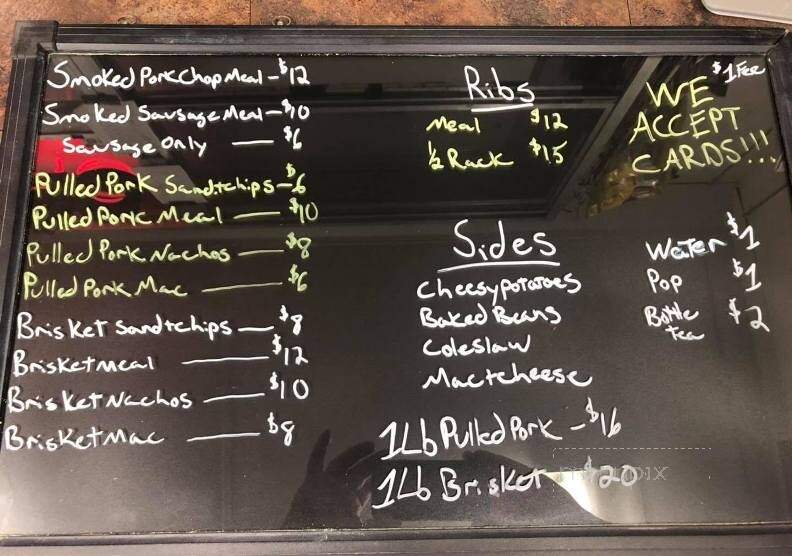 Smoked Pork Chop Meal - $12
Smoked Sausage Meal - $10
Sausage Only — $6
Pulled Pork Sand+chips - $6
Pulled Pork Meal — $10
Pulled Pork Nachos — $8
Pulled Pork Mac — $6
Brisket Sand+chips — $8
Brisket meal — $12
Brisket Nachos — $10
Brisket Mac — $8
Ribs
Meal $12
½ Rack $15
Sides
Cheesy potatoes
Baked Beans
Coleslaw
Mac+cheese
1Lb Pulled Pork - $16
1Lb Brisket - $20
$1 Fee
WE
ACCEPT
CARDS!!!
Water $1
Pop $1
Bottle $2
tea